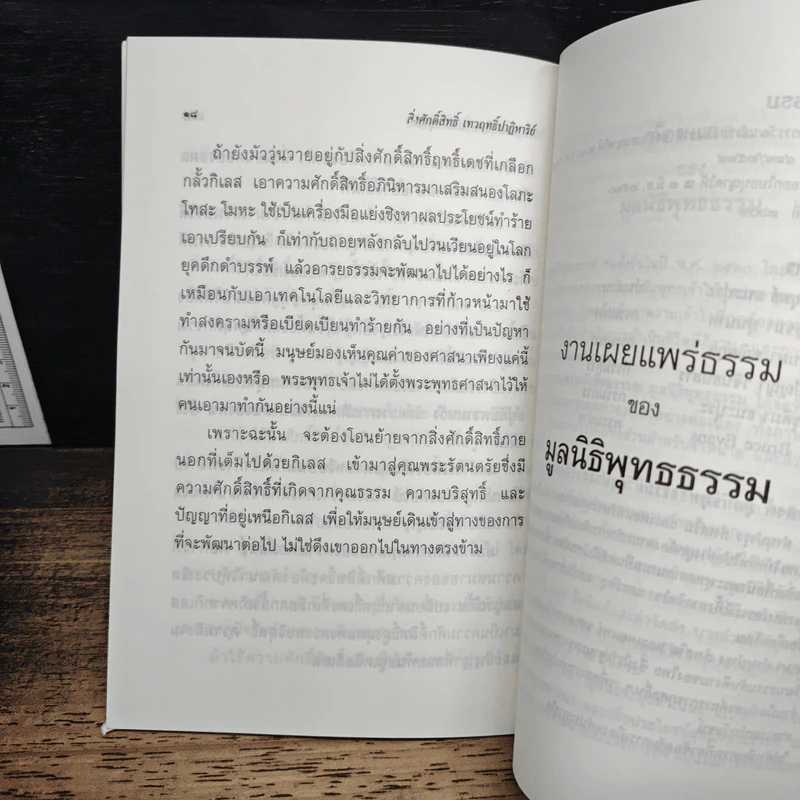 ๑๘
สิ่งศักดิ์สิทธิ์ เทวฤทธิ์ปาฏิหาริย์
ถ้ายังมัววุ่นวายอยู่กับสิ่งศักดิ์สิทธิ์ฤทธิ์เดชที่เกลือก
กลั้วกิเลส เอาความศักดิ์สิทธิ์อภินิหารมาเสริมสนองโลภะ
โทสะ โมหะ ใช้เป็นเครื่องมือแย่งชิงหาผลประโยชน์ทำร้าย
เอาเปรียบกัน ก็เท่ากับถอยหลังกลับไปวนเวียนอยู่ในโลก
ยุคดึกดำบรรพ์ แล้วอารยธรรมจะพัฒนาไปได้อย่างไร ก็
เหมือนกับเอาเทคโนโลยีและวิทยาการที่ก้าวหน้ามาใช้
ทำสงครามหรือเบียดเบียนทำร้ายกัน อย่างที่เป็นปัญหา
กันมาจนบัดนี้ มนุษย์มองเห็นคุณค่าของศาสนาเพียงแค่นี้
เท่านั้นเองหรือ พระพุทธเจ้าไม่ได้ตั้งพระพุทธศาสนาไว้ให้
คนเอามาทำกันอย่างนี้แน่
เพราะฉะนั้น จะต้องโอนย้ายจากสิ่งศักดิ์สิทธิ์ภาย
นอกที่เต็มไปด้วยกิเลส เข้ามาสู่คุณพระรัตนตรัยซึ่งมี
ความศักดิ์สิทธิ์ที่เกิดจากคุณธรรม ความบริสุทธิ์ และ
ปัญญาที่อยู่เหนือกิเลส เพื่อให้มนุษย์เดินเข้าสู่ทางของการ
ที่จะพัฒนาต่อไป ไม่ใช่ดึงเขาออกไปในทางตรงข้าม
งานเผยแพร่ธรรม
ของ
มูลนิธิพุทธธรรม